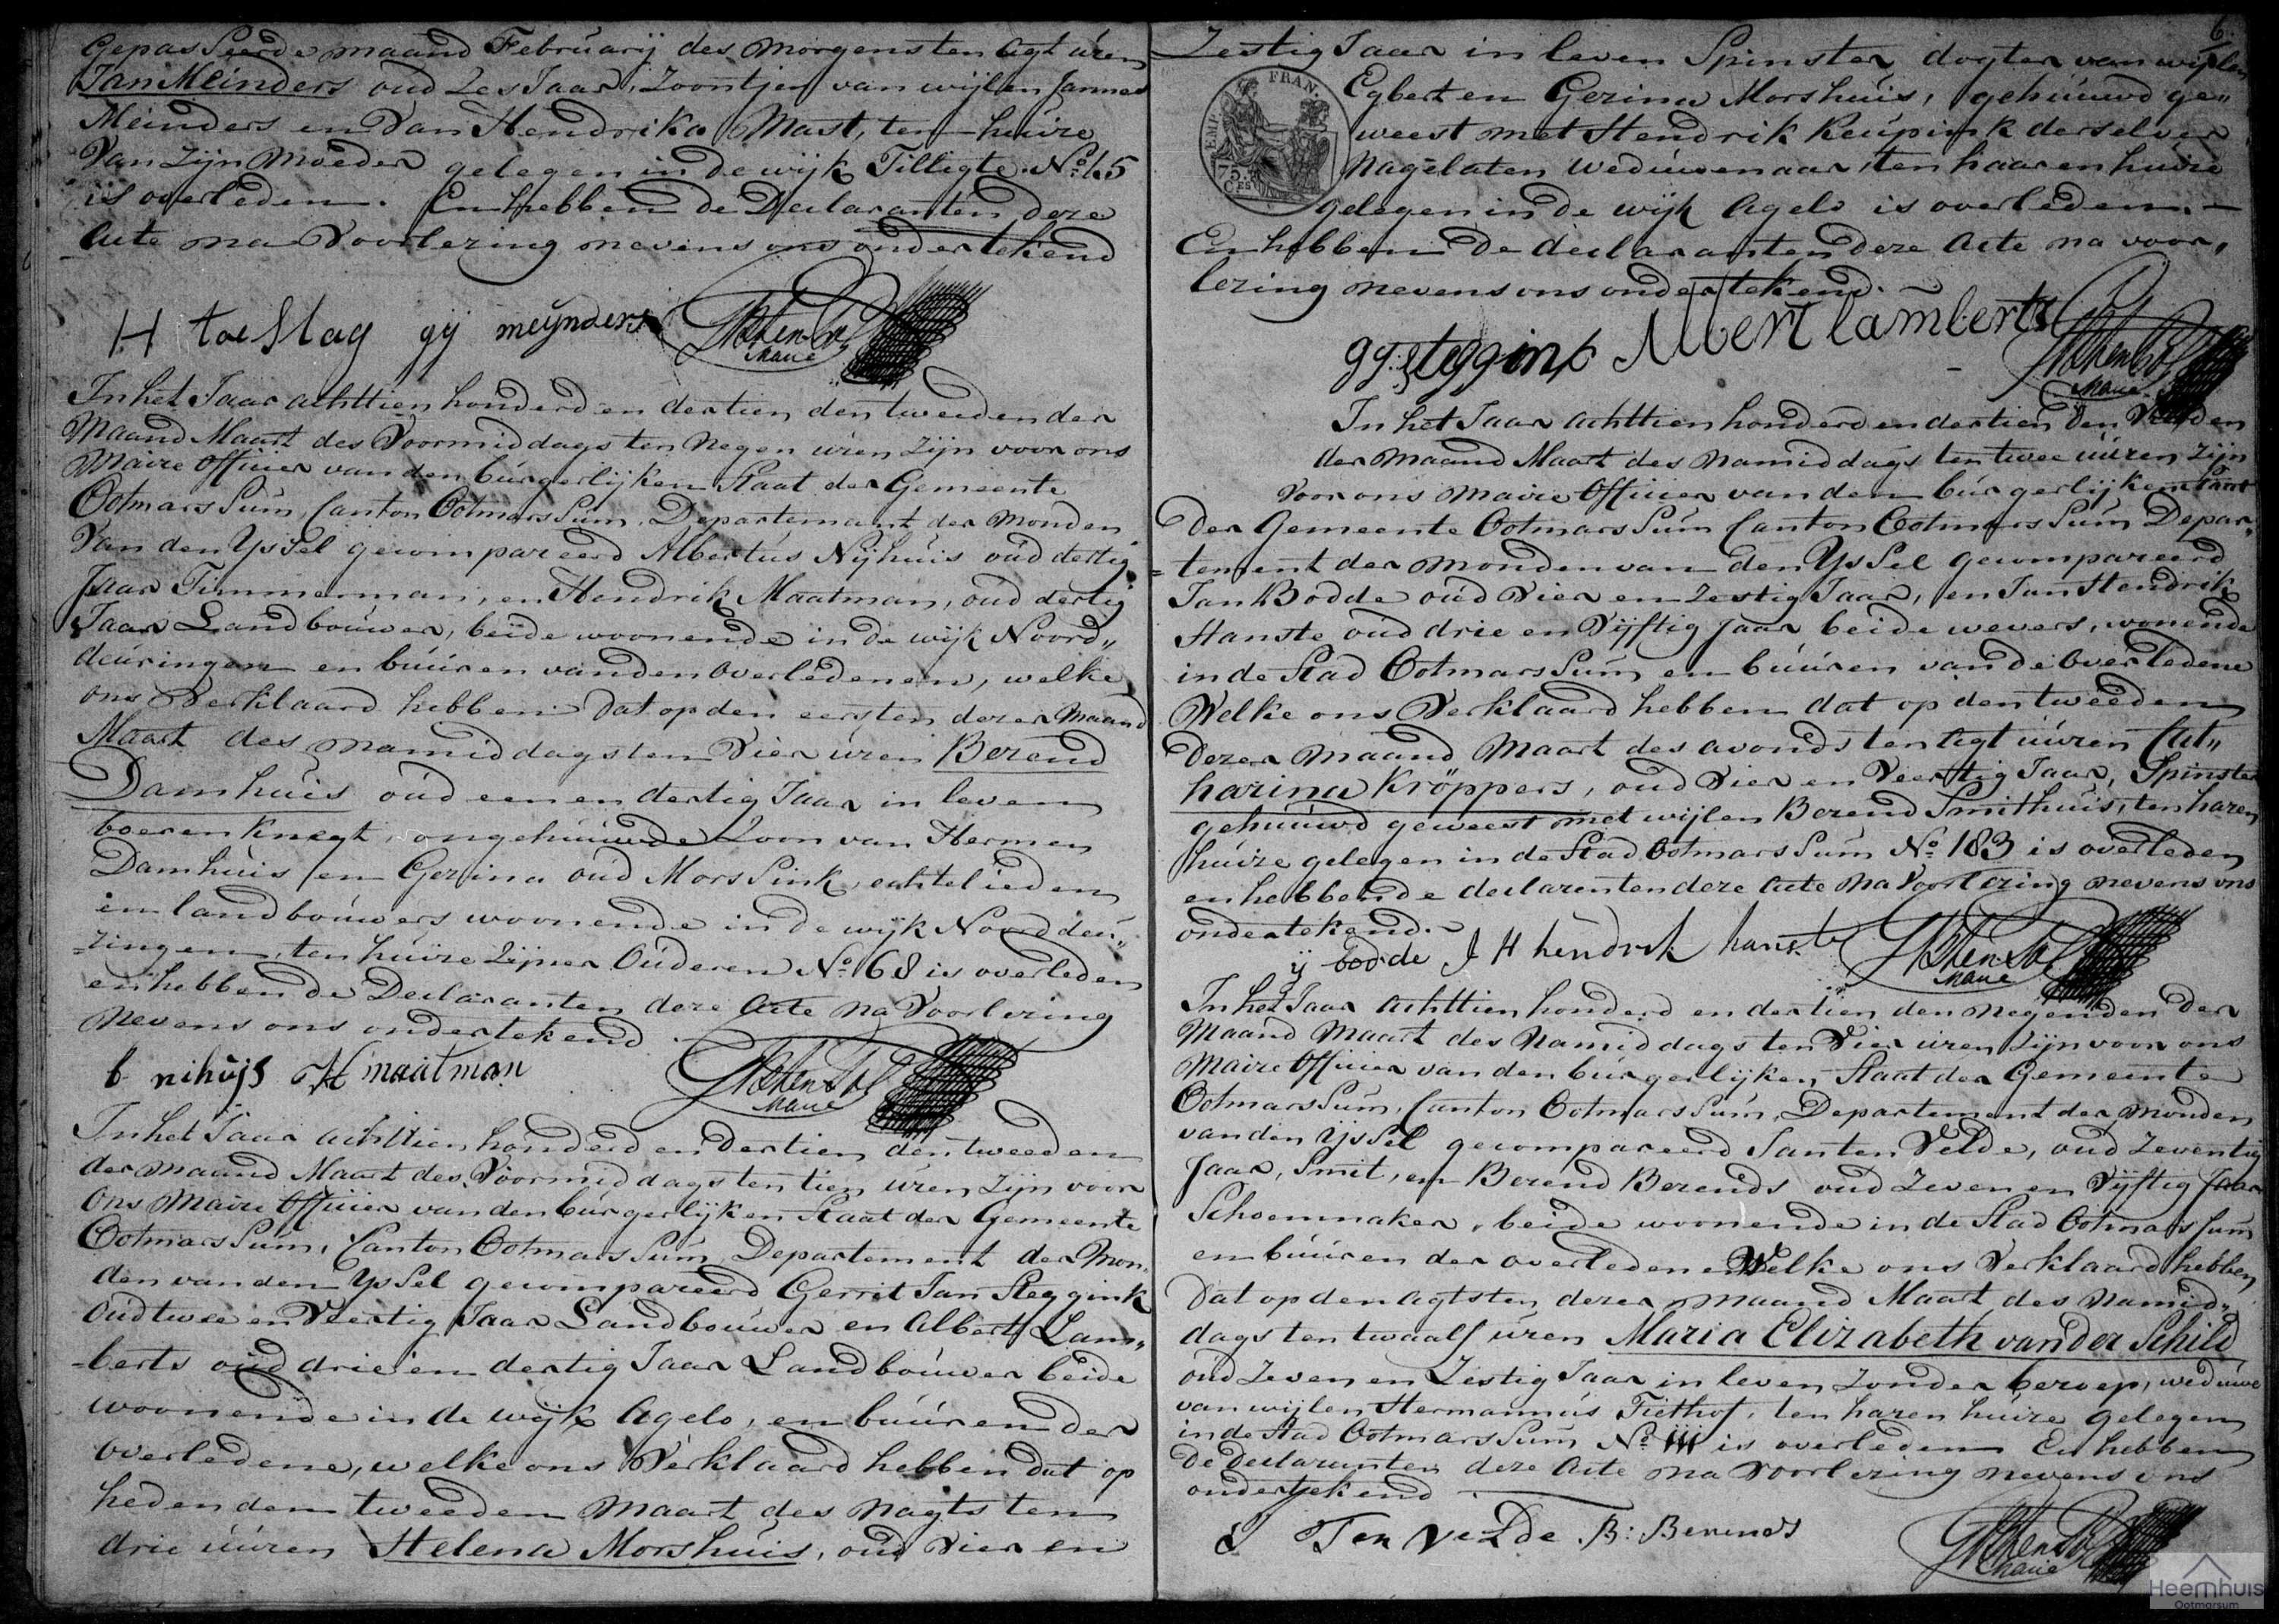 gepasseerde maand Februarij des morgens ten agt uren
Jan Meinders oud zes Jaar, Zoontjen van wijlen Jannes
Meinders en van Hendrika Mast, ten huize
van zijn moeder gelegen in de wijk Tilligte No 15
is overleden. En hebben de Declaranten deze
Acte na voorlezing nevens ons ondertekend
H toe Slag gj meijnders
Maire
In het Jaar achttien honderd en dertien den tweeden der
Maand Maart des Voormiddags ten Negen uren zijn voor ons
Maire Officier van den burgerlijken Staat der Gemeente
Ootmarssum, Canton Ootmarssum, Departemant der Monden
van den Yssel gecompareerd Albertus Nijhuis oud dertig
Jaar Timmerman, en Hendrik Maatman, oud dertig
Jaar Landbouwer, beide woonende in de wijk Noord„
deuringen en buuren van den overledenen, welke
ons Verklaard hebben dat op den eersten dezer Maand
Maart des namiddags ten Vier uren Berend
Damhuis oud een en dertig Jaar in leven
boeren knegt, ongehuuwde Zoon van Hermen
Damhuis en Gezina oud Morssink, echtelieden
en landbouwers woonende in de wijk Noord deu„
-zingen, ten huize zijner Ouderen No 68 is overleden
en hebben de Declaranten deze Acte na Voorlezing
nevens ons ondertekend.
b nihuijs H maatman
Maire
In het Jaar achttien honderd en dertien den tweeden
der maand Maart des Voormiddags ten tien uren zijn voor
ons Maire Officier van den burgerlijken Staat der Gemeente
Ootmarssum, Canton Ootmarssum Departement der Mon„
den van den Yssel gecompareerd Gerrit Jan Steggink
oud twee en Veertig Jaar Landbouwer en Albert Lam„
-berts oud drie en dertig Jaar Landbouwer beide
woonende in de wijk Agelo, en buuren der
overledene, welke ons Verklaard hebben dat op
heden den tweeden Maart des Nagts ten
drie uuren Helena Morshuis, oud Vier en
6.
Zestig Jaar in leven Spinster dogter van wijlen
EMP. FRAN.
75. CES
Egbert en Gezina Morshuis, gehuuwd ge„
weest met Hendrik Keupink derselver
nagelaten weduwenaar, ten haaren huize
gelegen in de wijk Agelo is overleden. —
En hebben de declaranten deze Acte na voor„
lezing nevens ons ondertekend.
gj steggink Albert lamberts
Maire
In het Jaar achttien honderd en dertien den Vierden
der maand Maart des namiddags ten twee uuren zijn
voor ons Maire Officier van den burgerlijken Staat
der Gemeente Ootmarssum Canton Ootmarssum Depar„
-tement der monden van den Yssel gecompareerd
Jan Bodde oud Vier en Zestig Jaar, en Jan Hendrik
Hanste oud drie en Vijftig Jaar beide wevers, wonende
in de Stad Ootmarssum en buuren van de overledene
Welke ons Verklaard hebben dat op den tweeden
dezer maand Maart des avonds ten Agt uuren Cat„
harina Kröppers, oud Vier en Veertig Jaar, Spinster
gehuuwd geweest met wijlen Berend Smithuis, ten haren
huize gelegen in de Stad Ootmarssum No 183 is overleden
en hebben de declaranten deze Acte na Voorlezing nevens ons
ondertekend.
ij bodde J H hendrik hanste
Maire
In het Jaar achttien honderd en dertien den negenden der
Maand Maart des Namiddags ten Vier uren zijn voor ons
Maire Officier van den burgerlijken Staat der Gemeente
Ootmarssum, Canton Ootmarssum, Departement der monden
van den Yssel gecompareerd Jan ten Velde, oud zeventig
Jaar, Smit, en Berend Berends oud Zeven en Vijftig Jaar
Schoenmaker, beide woonende in de Stad Ootmarssum
en buuren der overledenen Welke ons Verklaard hebben
dat op den agtsten dezer maand Maart des Namid„
dags ten twaalf uren Maria Elizabeth van der Schild
oud Zeven en Zestig Jaar in leven zonder beroep, weduwe
van wijlen Hermannus Tiethof, ten haren huize gelegen
in de Stad Ootmarssum No 111 is overleden En hebben
de declaranten deze Acte na voorlezing nevens ons
ondertekend.
J Ten Velde B: Berends
Maire
Heemhuis
Ootmarsum